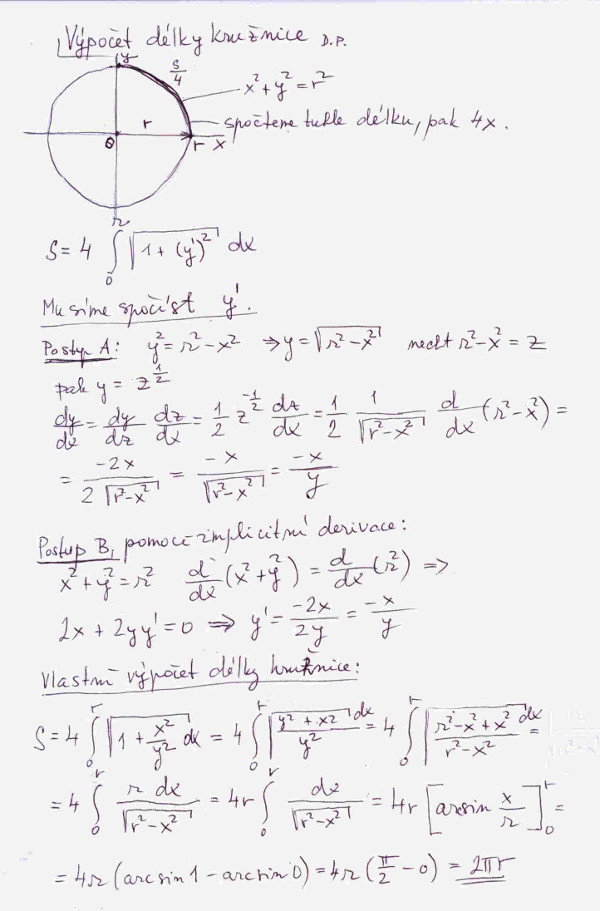 Výpočet délky kružnice D.P.
y
s/4
x² + y² = r²
r
spočteme tuhle délku, pak 4x.
0 r x
S = 4 ∫₀ʳ √(1 + (y')²) dx
Musíme spočíst y'.
Postup A: y² = r² − x² ⇒ y = √(r² − x²) nechť r² − x² = z
pak y = z^(1/2)
dy/dx = dy/dz dz/dx = 1/2 z^(-1/2) dz/dx = 1/2 1/√(r² − x²) d/dx (r² − x²) =
= −2x / 2√(r² − x²) = −x/√(r² − x²) = −x/y
Postup B, pomocí implicitní derivace:
x² + y² = r² d/dx (x² + y²) = d/dx (r²) ⇒
2x + 2yy' = 0 ⇒ y' = −2x/2y = −x/y
Vlastní výpočet délky kružnice:
S = 4 ∫₀ʳ √(1 + x²/y²) dx = 4 ∫₀ʳ √((y² + x2)/y²) dx = 4 ∫₀ʳ √((r² − x² + x²)/(r² − x²)) dx =
= 4 ∫₀ʳ r dx/√(r² − x²) = 4r ∫₀ʳ dx/√(r² − x²) = 4r [arcsin x/r]₀ʳ =
= 4r (arcsin 1 − arcsin 0) = 4r (π/2 − 0) = 2πr